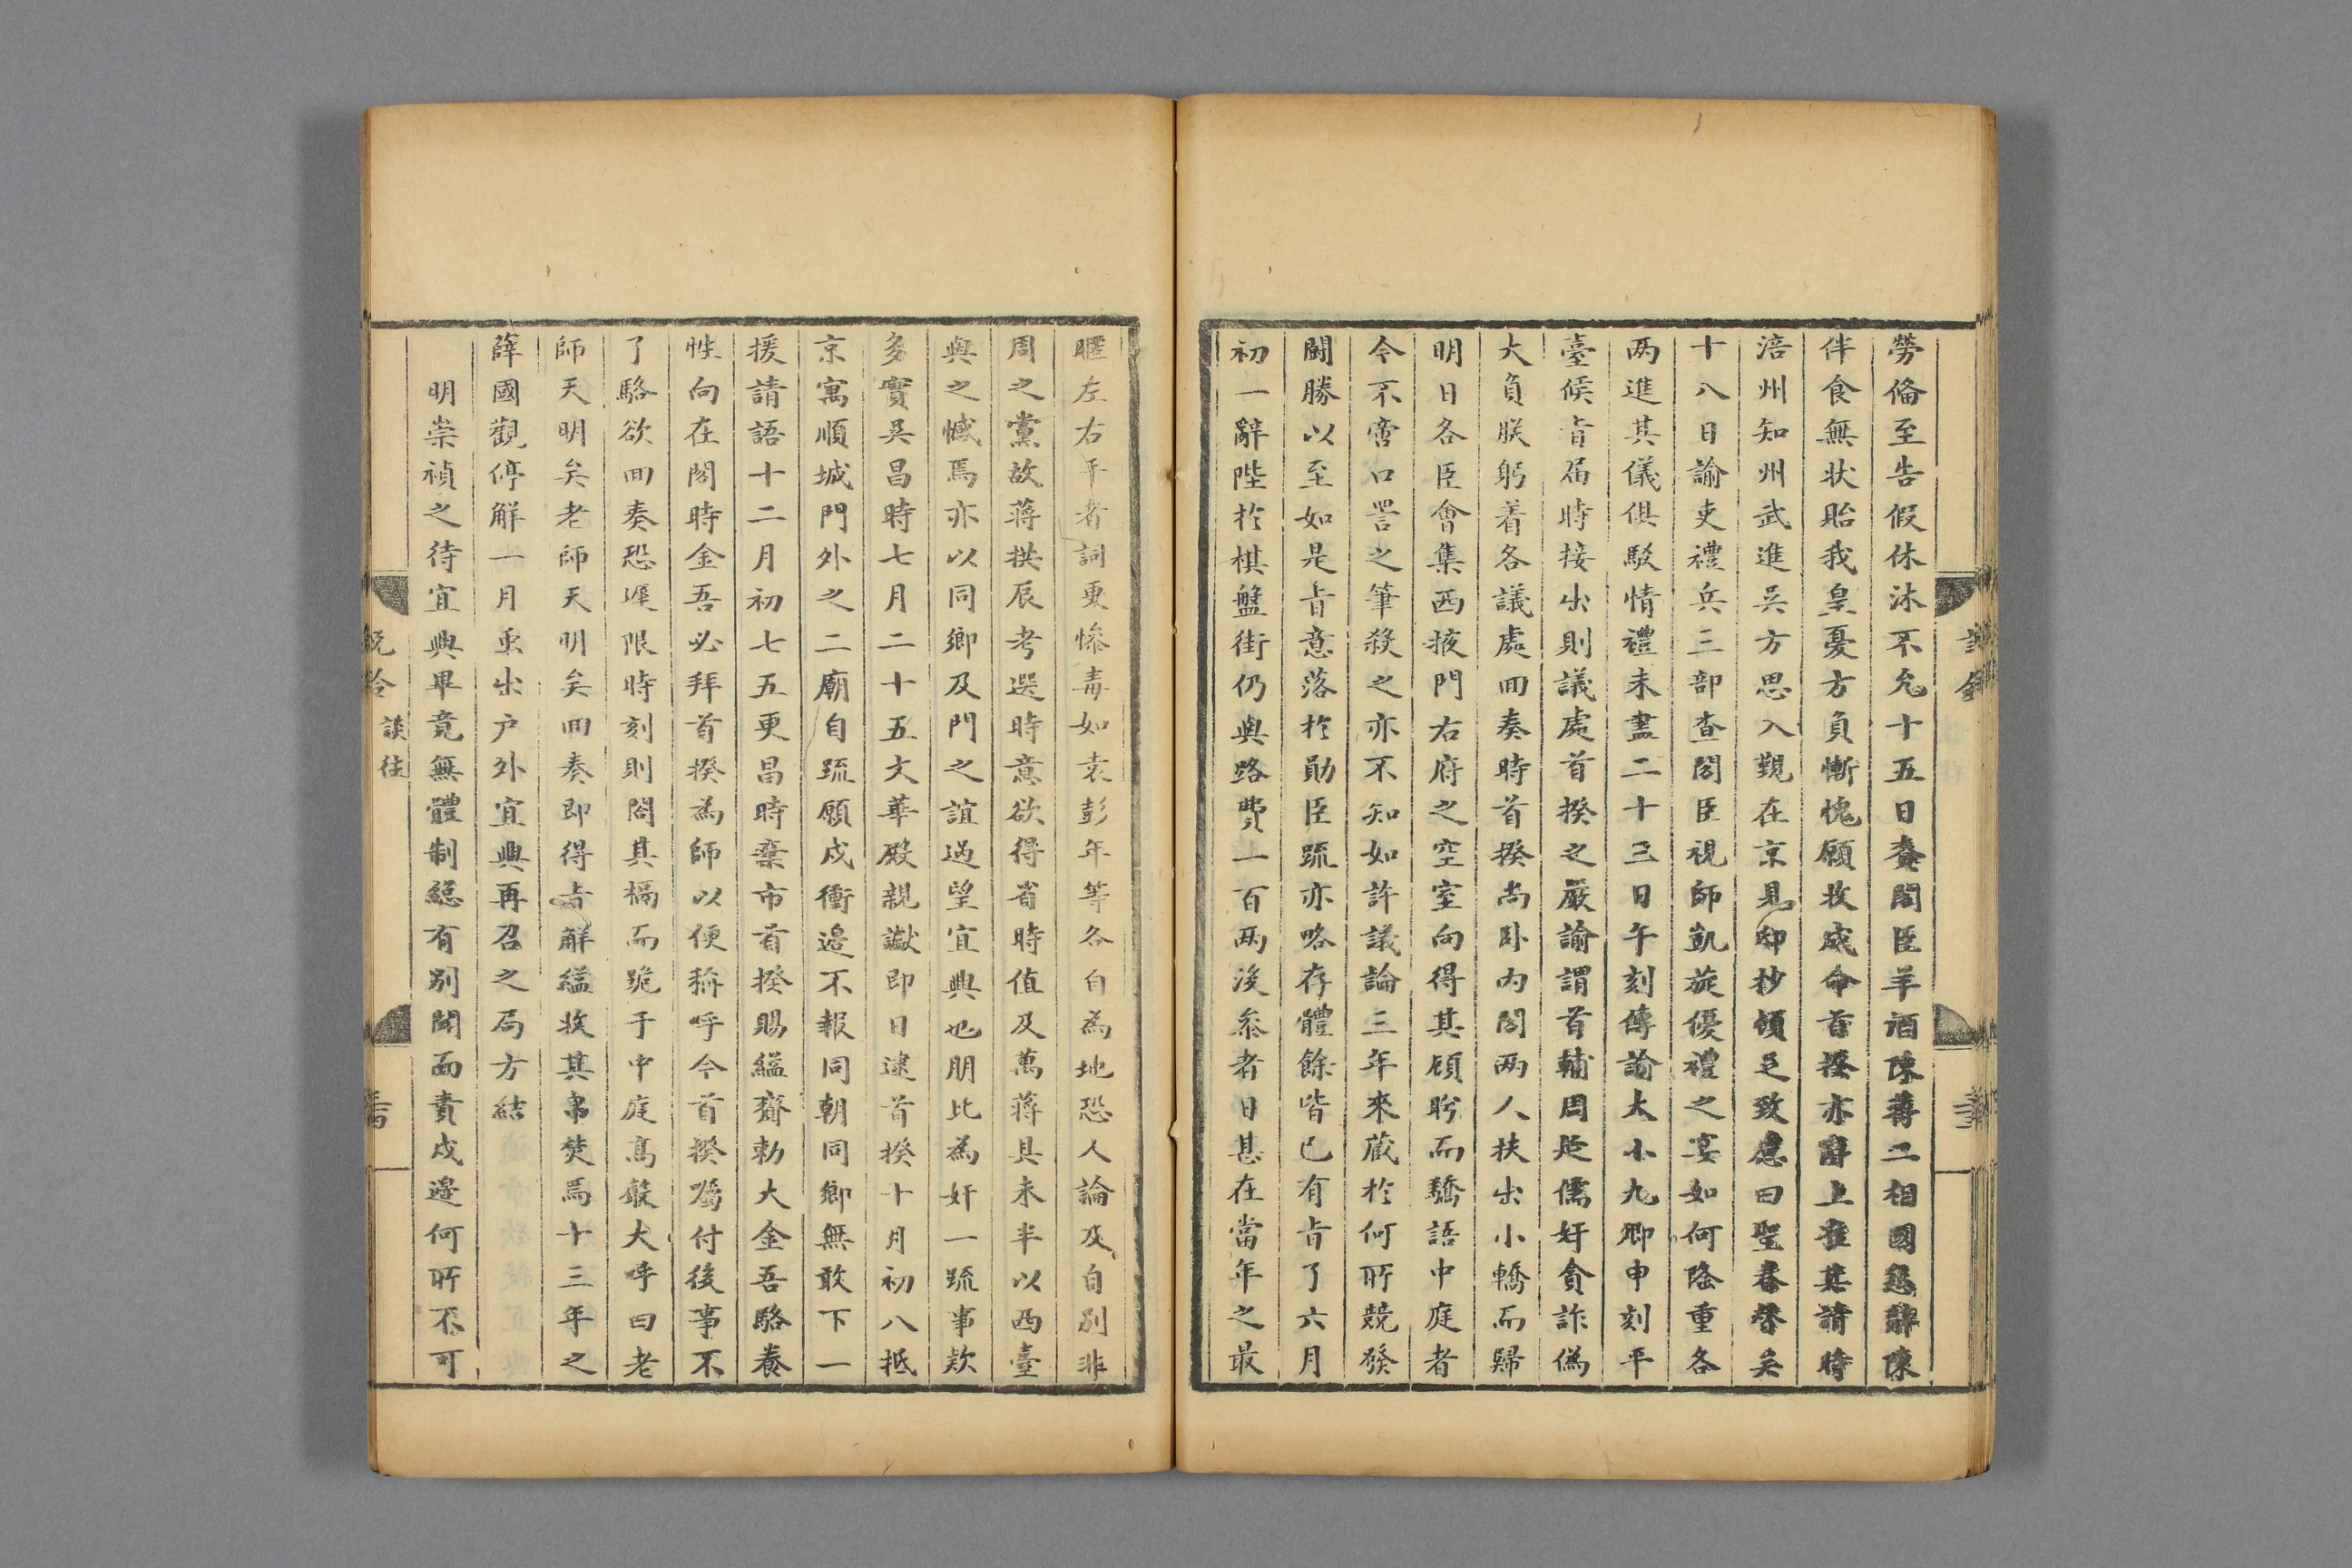 勞俻至告假休沐不允十五日賚閣臣羊酒陳蔣二相國懇辭陳
伴食無状貽我皇憂方負慚愧願收成命首揆亦辭上准其請時
涪州知州武進吳方思入覲在京見邸抄頓足致慮曰聖眷替矣
十八日諭吏禮兵三部查閣臣視師凱旋優禮之宴如何隆重各
两進其儀俱駁情禮未盡二十三日午刻傳諭大小九卿申刻平
臺候㫖届時接出則議處首揆之嚴諭謂首輔周延儒奸貪詐偽
大負朕躬着各議處回奏時首揆尚卧内閣两人扶出小轎而歸
明日各臣會集西掖門右府之空室向得其頋盻而驕語中庭者
今不啻口詈之筆殺之亦不知如許議論三年來蔵扵何所競發
鬪勝以至如是㫖意落扵勛臣疏亦略存體餘皆已有㫖了六月
初一辭陛扵棋盤街仍與路費一百两後叅者日甚在當年之最
暱左右平者詞更慘毒如袁彭年等各自為地恐人論及自别非
周之黨故蔣拱宸考選時意欲得省時值及萬蔣具未半以西臺
與之憾焉亦以同鄉及門之誼過望宜興也朋比為奸一疏事欵
多實吳昌時七月二十五文華殿親讞即日逮首揆十月初八抵
京寓順城門外之二廟自疏願戍衝邉不報同朝同鄉無敢下一
援請語十二月初七五更昌時棄市首揆賜縊齎勅大金吾駱養
性向在閣時金吾必拜首揆為師以便稱呼今首揆囑付後事不
了駱欲回奏恐遲限時刻則閤其槅而跪于中庭髙聲大呼曰老
師天明矣老師天明矣回奏即得㫖解縊收其帛焚焉十三年之
薛國觀停解一月重出户外宜興再召之局方結
明崇禎之待宜興畢竟無體制緦有别聞面責戍邉何所不可
説鈴
談往